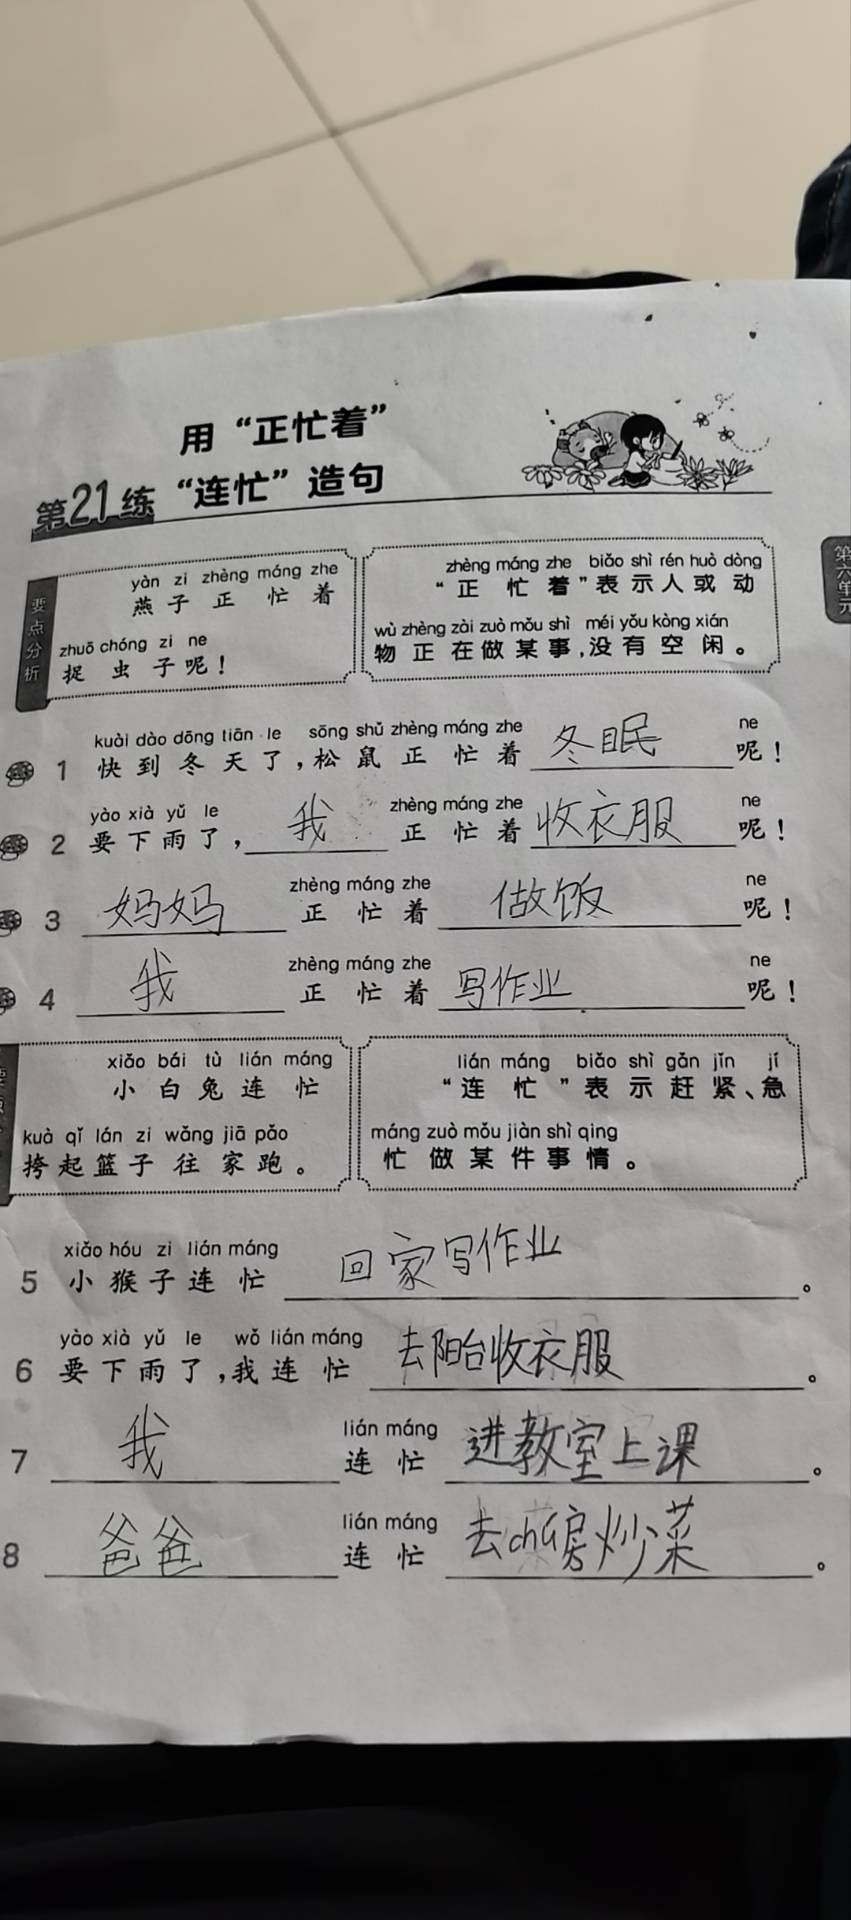 用“正忙着”
第21练 “连忙”造句
第六单元
要点分析
yàn zi zhèng máng zhe
燕子正忙着
zhuō chóng zi ne
捉虫子呢！
zhèng máng zhe biǎo shì rén huò dòng
“正忙着”表示人或动
wù zhèng zài zuò mǒu shì méi yǒu kòng xián
物正在做某事，没有空闲。
kuài dào dōng tiān le sōng shǔ zhèng máng zhe ne
1 快到冬天了，松鼠正忙着冬眠呢！
yào xià yǔ le zhèng máng zhe ne
2 要下雨了，我正忙着收衣服呢！
zhèng máng zhe ne
3 妈妈正忙着做饭呢！
zhèng máng zhe ne
4 我正忙着写作业呢！
xiǎo bái tù lián máng
小白兔连忙
kuà qǐ lán zi wǎng jiā pǎo
挎起篮子往家跑。
lián máng biǎo shì gǎn jǐn jí
“连忙”表示赶紧、急
máng zuò mǒu jiàn shì qing
忙做某件事情。
xiǎo hóu zi lián máng
5 小猴子连忙回家写作业。
yào xià yǔ le wǒ lián máng
6 要下雨了，我连忙去阳台收衣服。
lián máng
7 我连忙进教室上课。
lián máng
8 爸爸连忙去chú房炒菜。